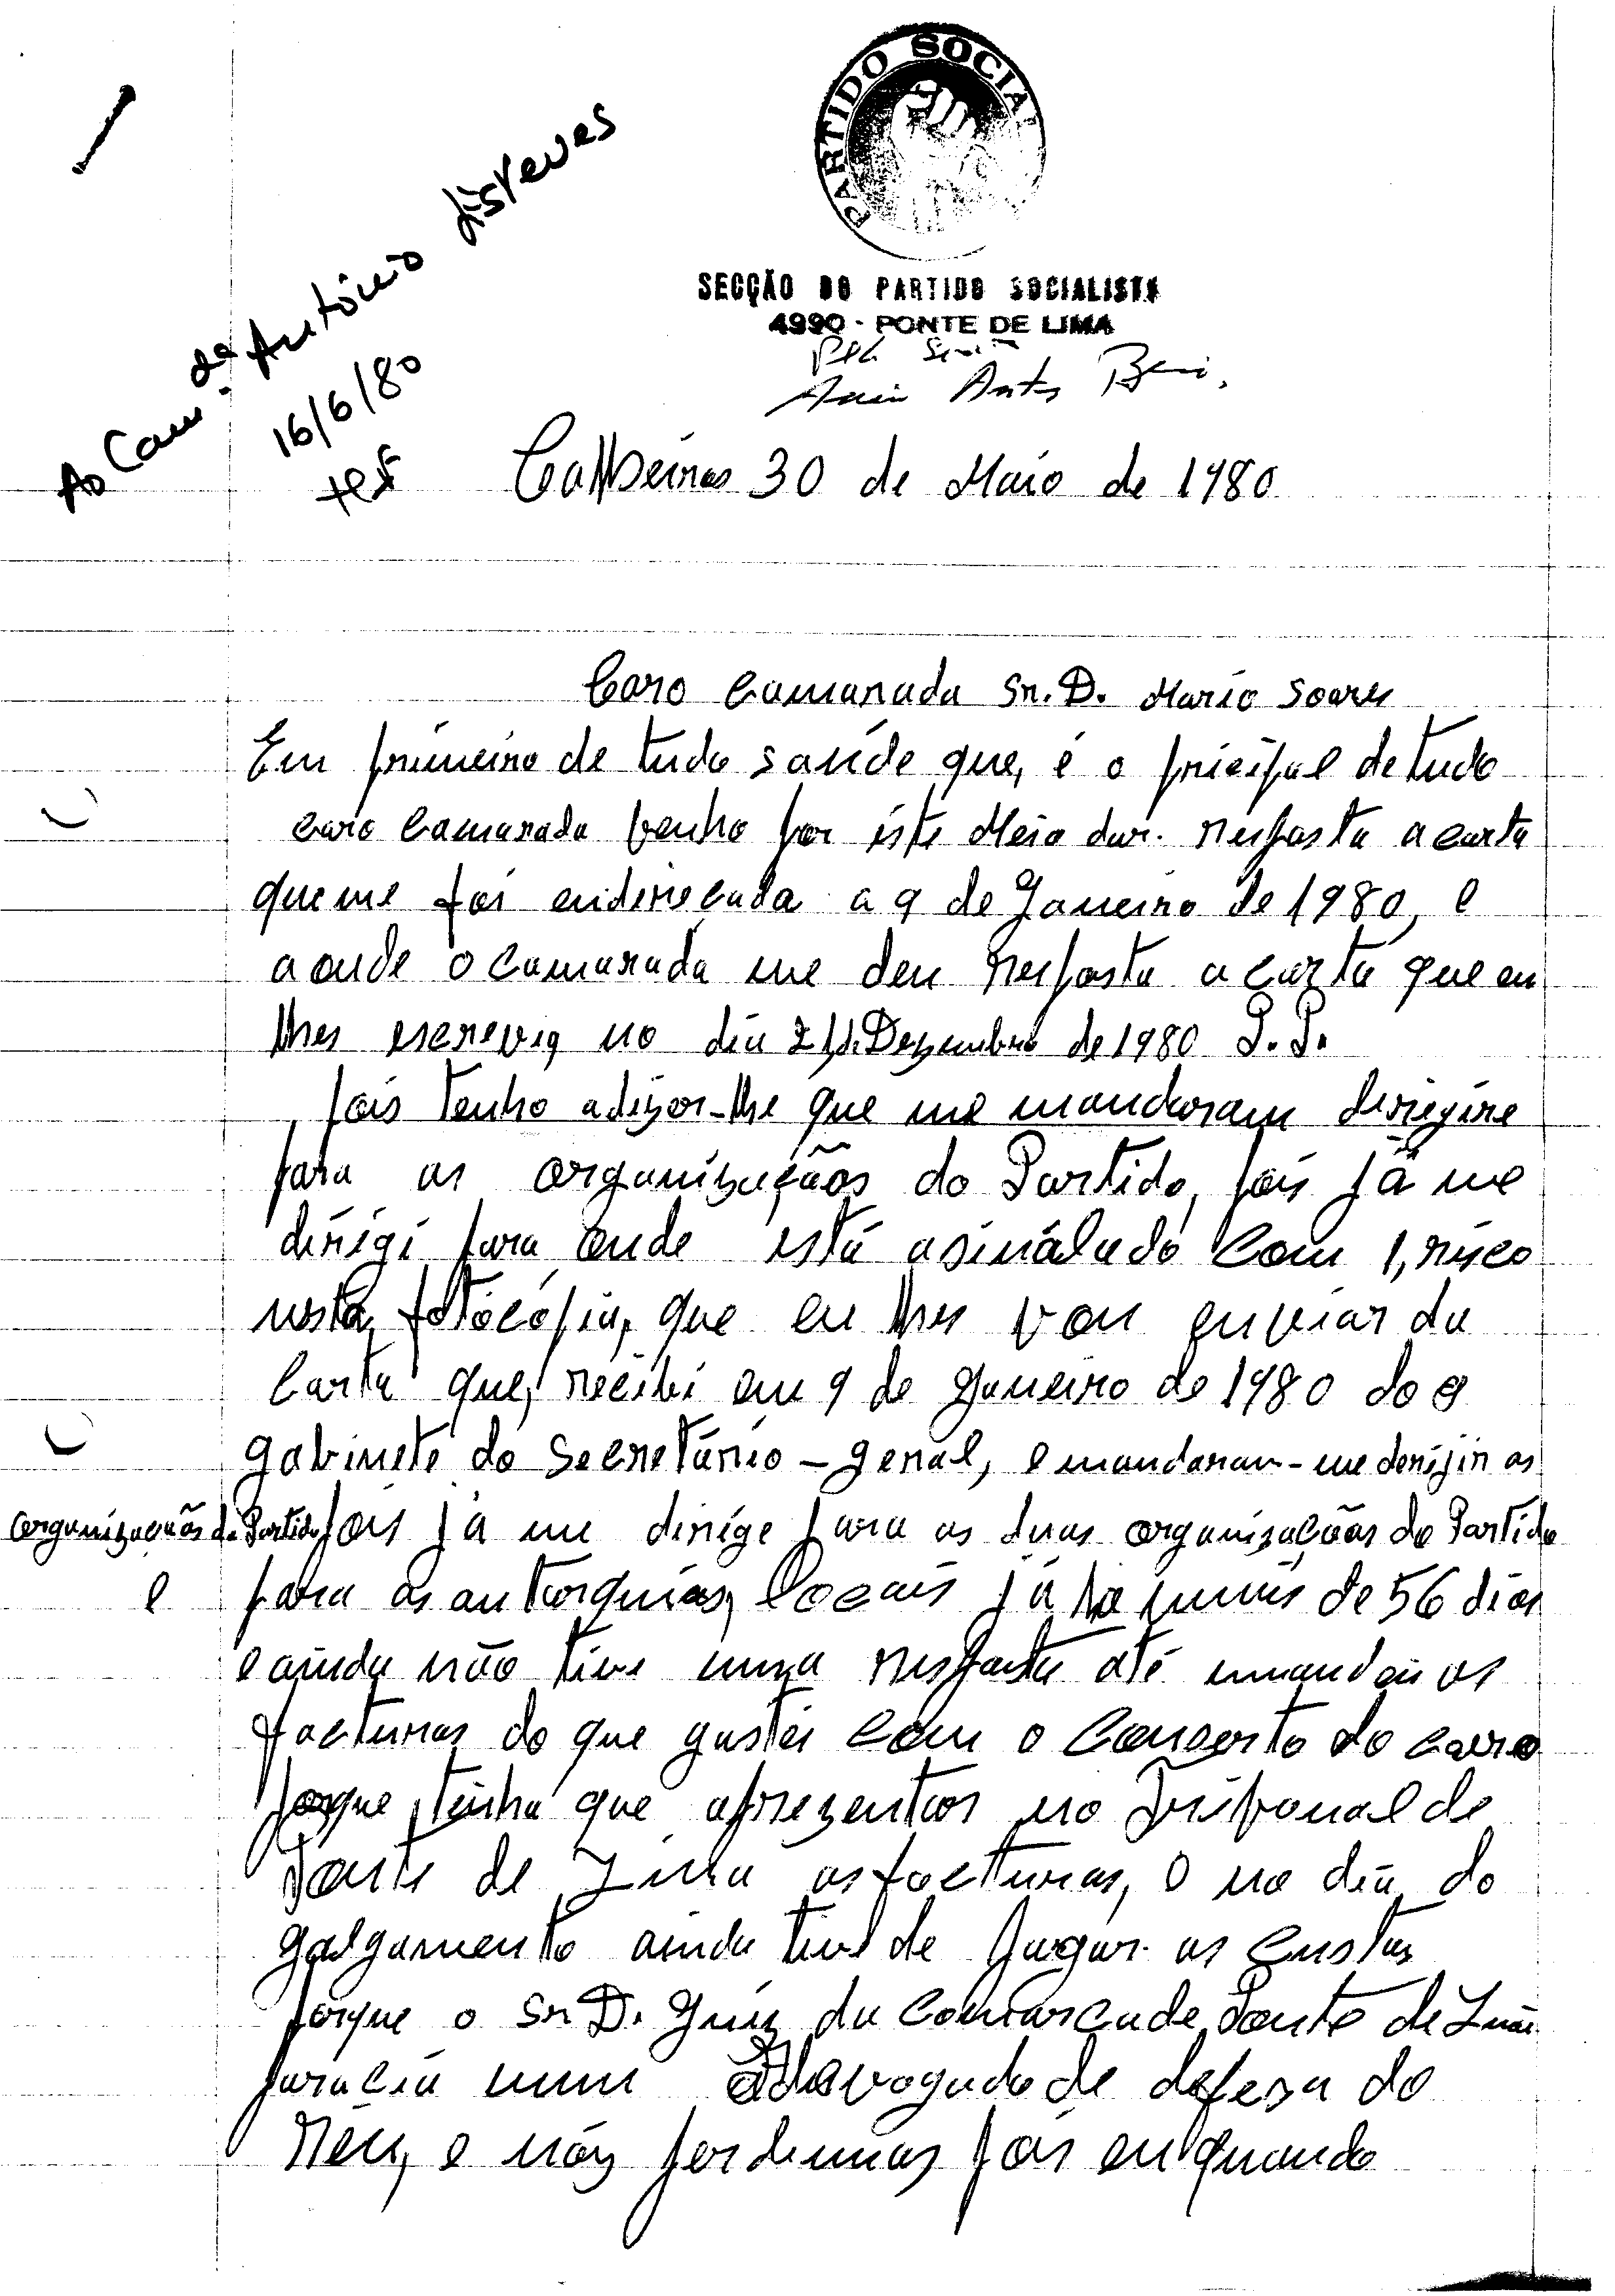 PARTIDO SOCIAL
SECÇÃO DO PARTIDO SOCIALISTA
4990 - PONTE DE LIMA
Ao Cam.da António Esteves
16/6/80
Calheiros 30 de Maio de 1980
Caro Camarada Sr. D. Mario Soares
Em primeiro de tudo saúde que, é o pricipal de tudo
caro Camarada venho por éste Meio dar resposta a carta
que me foi endereçada a 9 de Janeiro de 1980, e
aonde o camarada me deu resposta a carta que eu
lhes escrevig no dia Dezembro de 1980 P.P.
pois tenho adizer-lhe que me mandaram dirigire
para as organizaçãos do Partido, pois já me
dirigi para onde está asinálado com 1, risco
nesta, fotócópia, que eu lhes vou enviar da
Carta que, recibi em 9 de Janeiro de 1980 do
gabinete do Secretário - geral, e mandaram-me dirigir as
organizaçãos do Partido pois já me dirige para as duas organizaçãos do Partido
e para as autarquias, locais já ha mais de 56 dias
e ainda não tive uma resposta até mandei as
facturas do que gastei com o Conserto do carro
porque tinha que aprezentar no Tribonal de
Ponte de Lima as facturas, e no dia do
galgamento ainda tive de pagar as custas
porque o Sr D. Juiz da Comarca de Ponte de Lima
parecia um Adevogado de defesa do
Réu, e nós perdemos pois enquando